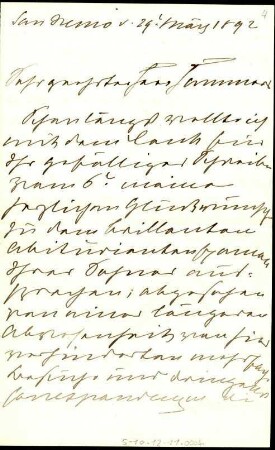 San Remo d. 29' März 1892
Sehr geehrtester Herr Hammer
Schon längst wollte ich
mit dem Dank für
Ihr gefälliges Schreiben
vom 6' meine
herzlichen Glückwünsche
zu dem brillanten
Abiturientenexamen
Ihres Sohnes aus-
sprechen; abgesehen
von einer längeren
Abwesenheit von hier
verhinderten mehrfache
Besuche und dringende
Correspondenzen